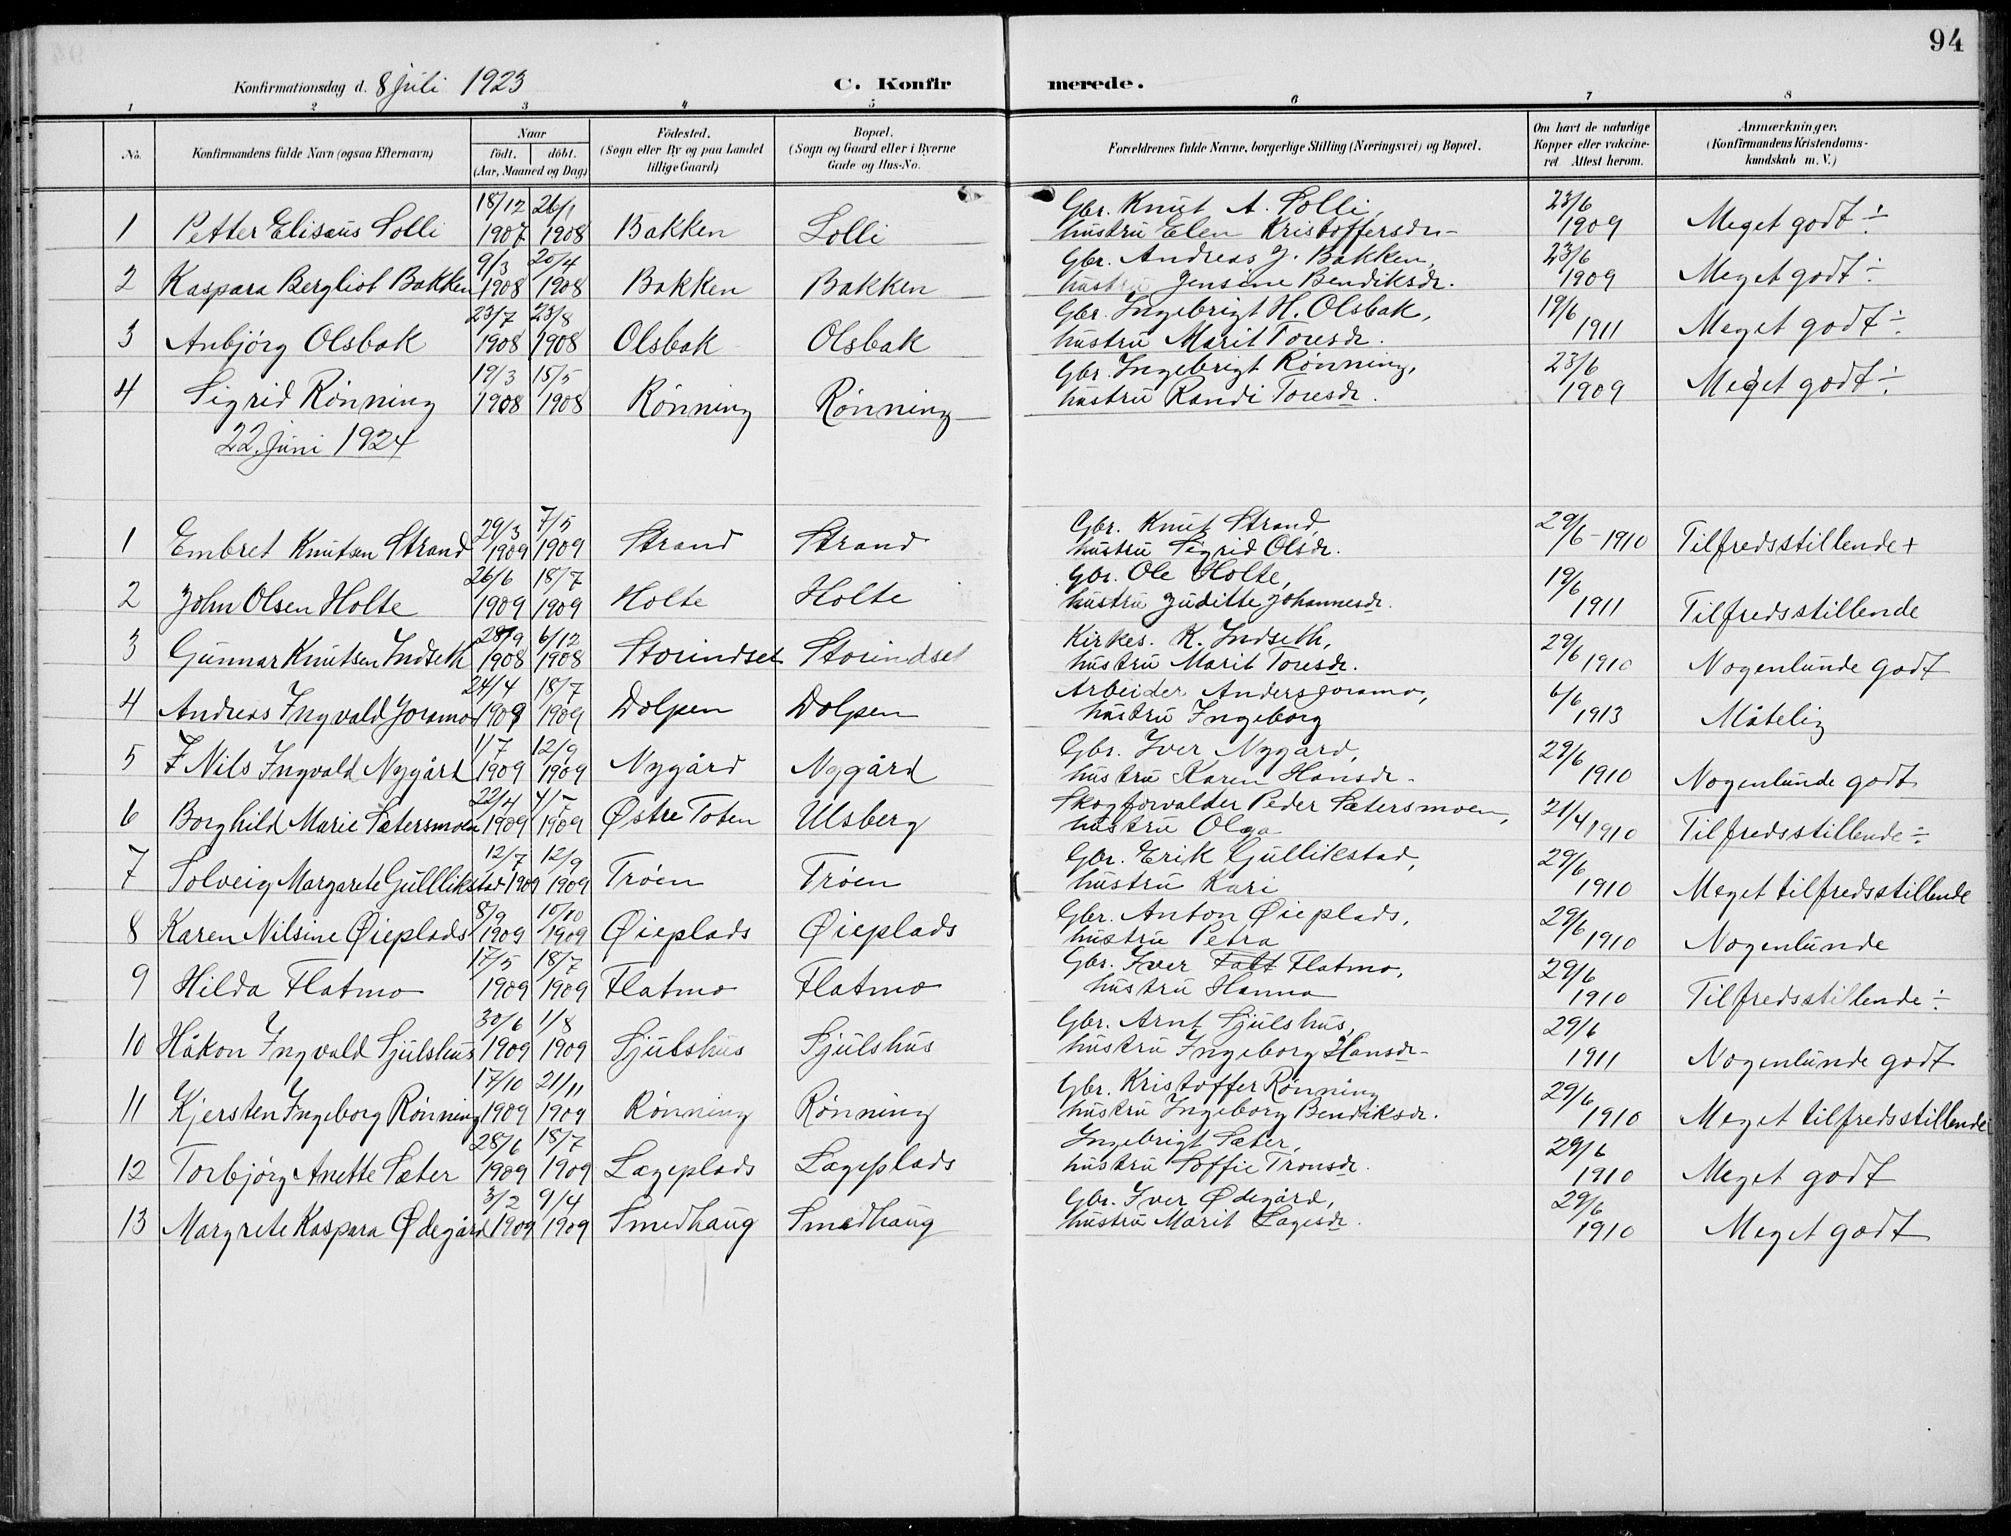 94
Konfirmationsdag d. 8 juli 1923 C. Konfirmerede.
1 2 3 4 5 6 7 8
No. Konfirmandens fulde Navn (ogsaa Efternavn) Naar födt. döbt. (Aar, Maaned og Dag) Födested. (Sogn eller By og paa Landet tillige Gaard) Bopæl. (Sogn og Gaard eller i Byerne Gade og Hus-No. Forældrenes fulde Navne, borgerlige Stilling (Næringsvei) og Bopæl. Om havt de naturlige Kopper eller vakcineret Attest herom. Anmærkninger. (Konfirmandens Kristendomskundskab m. V.)
1 Petter Elisæus Solli 18/12 1907 26/1 1908 Bakken Solli Gbr. Knut A. Solli, hustru Elen Kristoffersdr- 23/6 1909 Meget godt ÷
2 Kaspara Bergliot Bakken 9/3 1908 20/4 1908 Bakken Bakken Gbr. Andreas J. Bakken, hustru Jensine Bendiksdr. 23/6 1909 Meget godt ÷
3 Anbjörg Olsbak 23/7 1908 23/8 1908 Olsbak Olsbak Gbr. Ingebrigt H. Olsbak, hustru Marit Toresdr. 19/6 1911 Meget godt ÷
4 Sigrid Rönning 19/3 1908 15/5 1908 Rönning Rönning Gbr. Ingebrigt Rönning, hustru Randi Toresdr. 23/6 1909 Meget godt ÷
22. juni 1924
1 Embret Knutsen Strand 29/3 1909 7/5 1909 Strand Strand Gbr. Knut Strand, hustru Sigrid Olsdr. 29/6-1910 Tilfredsstillende +
2 John Olsen Holte 26/6 1909 18/7 1909 Holte Holte Gbr. Ole Holte, hustru Juditte Johannesdr. 19/6 1911 Tilfredsstillende
3 Gunnar Knutsen Indseth 28/9 1908 6/12 1908 Storindset Storindset Kirkes. K. Indseth, hustru Marit Toresdr. 29/6 1910 Nogenlunde godt
4 Andreas Ingvald Joramo 24/4 1909 18/7 1909 Dolpen Dolpen Arbeider Anders Joramo, hustru Ingeborg 6/6 1913 Måtelig
5 Nils Ingvald Nygård 1/7 1909 12/9 1909 Nygård Nygård Gbr. Iver Nygård, hustru Karen Hansdr- 29/6 1910 Nogenlunde godt
6 Borghild Marie Sætersmoen 22/4 1909 4/7 1909 Østre Toten Ulsberg Skogforvalter Peder Sætersmoen, hustru Olga 21/4 1910 Tilfredsstillende ÷
7 Solveig Margarete Gulllikstad 12/7 1909 12/9 1909 Tröen Tröen Gbr. Erik Gullikstad, hustru Kari 29/6 1910 Meget tilfredsstillende
8 Karen Nilsine Øieplads 8/9 1909 10/10 1909 Øieplads Øieplads Gbr. Anton Øieplads, hustru Petra 29/6 1910 Nogenlunde
9 Hilda Flatmo 17/5 1909 18/7 1909 Flatmo Flatmo Gbr. Iver Flatmo, hustru Hanna 29/6 1910 Tilfredsstillende ÷
10 Håkon Ingvald Sjulshus 30/6 1909 1/8 1909 Sjulshus Sjulshus Gbr. Arnt Sjulshus, hustru Ingeborg Hansdr- 29/6 1911 Nogenlunde godt
11 Kjersten Ingeborg Rönning 17/10 1909 21/11 1909 Rönning Rönning Gbr. Kristoffer Rönning hustru Ingeborg Bendiksdr. 29/6 1910 Meget tilfredsstillende
12 Torbjörg Anette Sæter 28/6 1909 18/7 1909 Lægeplads Lægeplads Ingebrigt Sæter, hustru Soffie Tronsdr. 29/6 1910 Meget godt
13 Margrete Kaspara Ødegård 3/2 1909 9/4 1909 Smedhaug Smedhaug Gbr. Iver Ødegård, hustru Marit Lagesdr. 29/6 1910 Meget godt